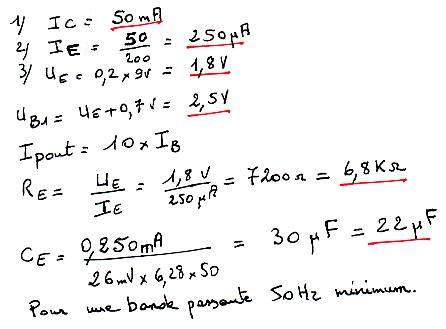 1) IC = 50mA
2) IE = 50/200 = 250µA
3) UE = 0,2 x 9V = 1,8V
UB1 = UE + 0,7V = 2,5V
Ipont = 10 x IB
RE = UE/IE = 1,8V/250µA = 7200Ω = 6,8KΩ
CE = 0,250mA/26mV x 6,28 x 50 = 30µF = 22µF
Pour une bande passante 50Hz minimum.